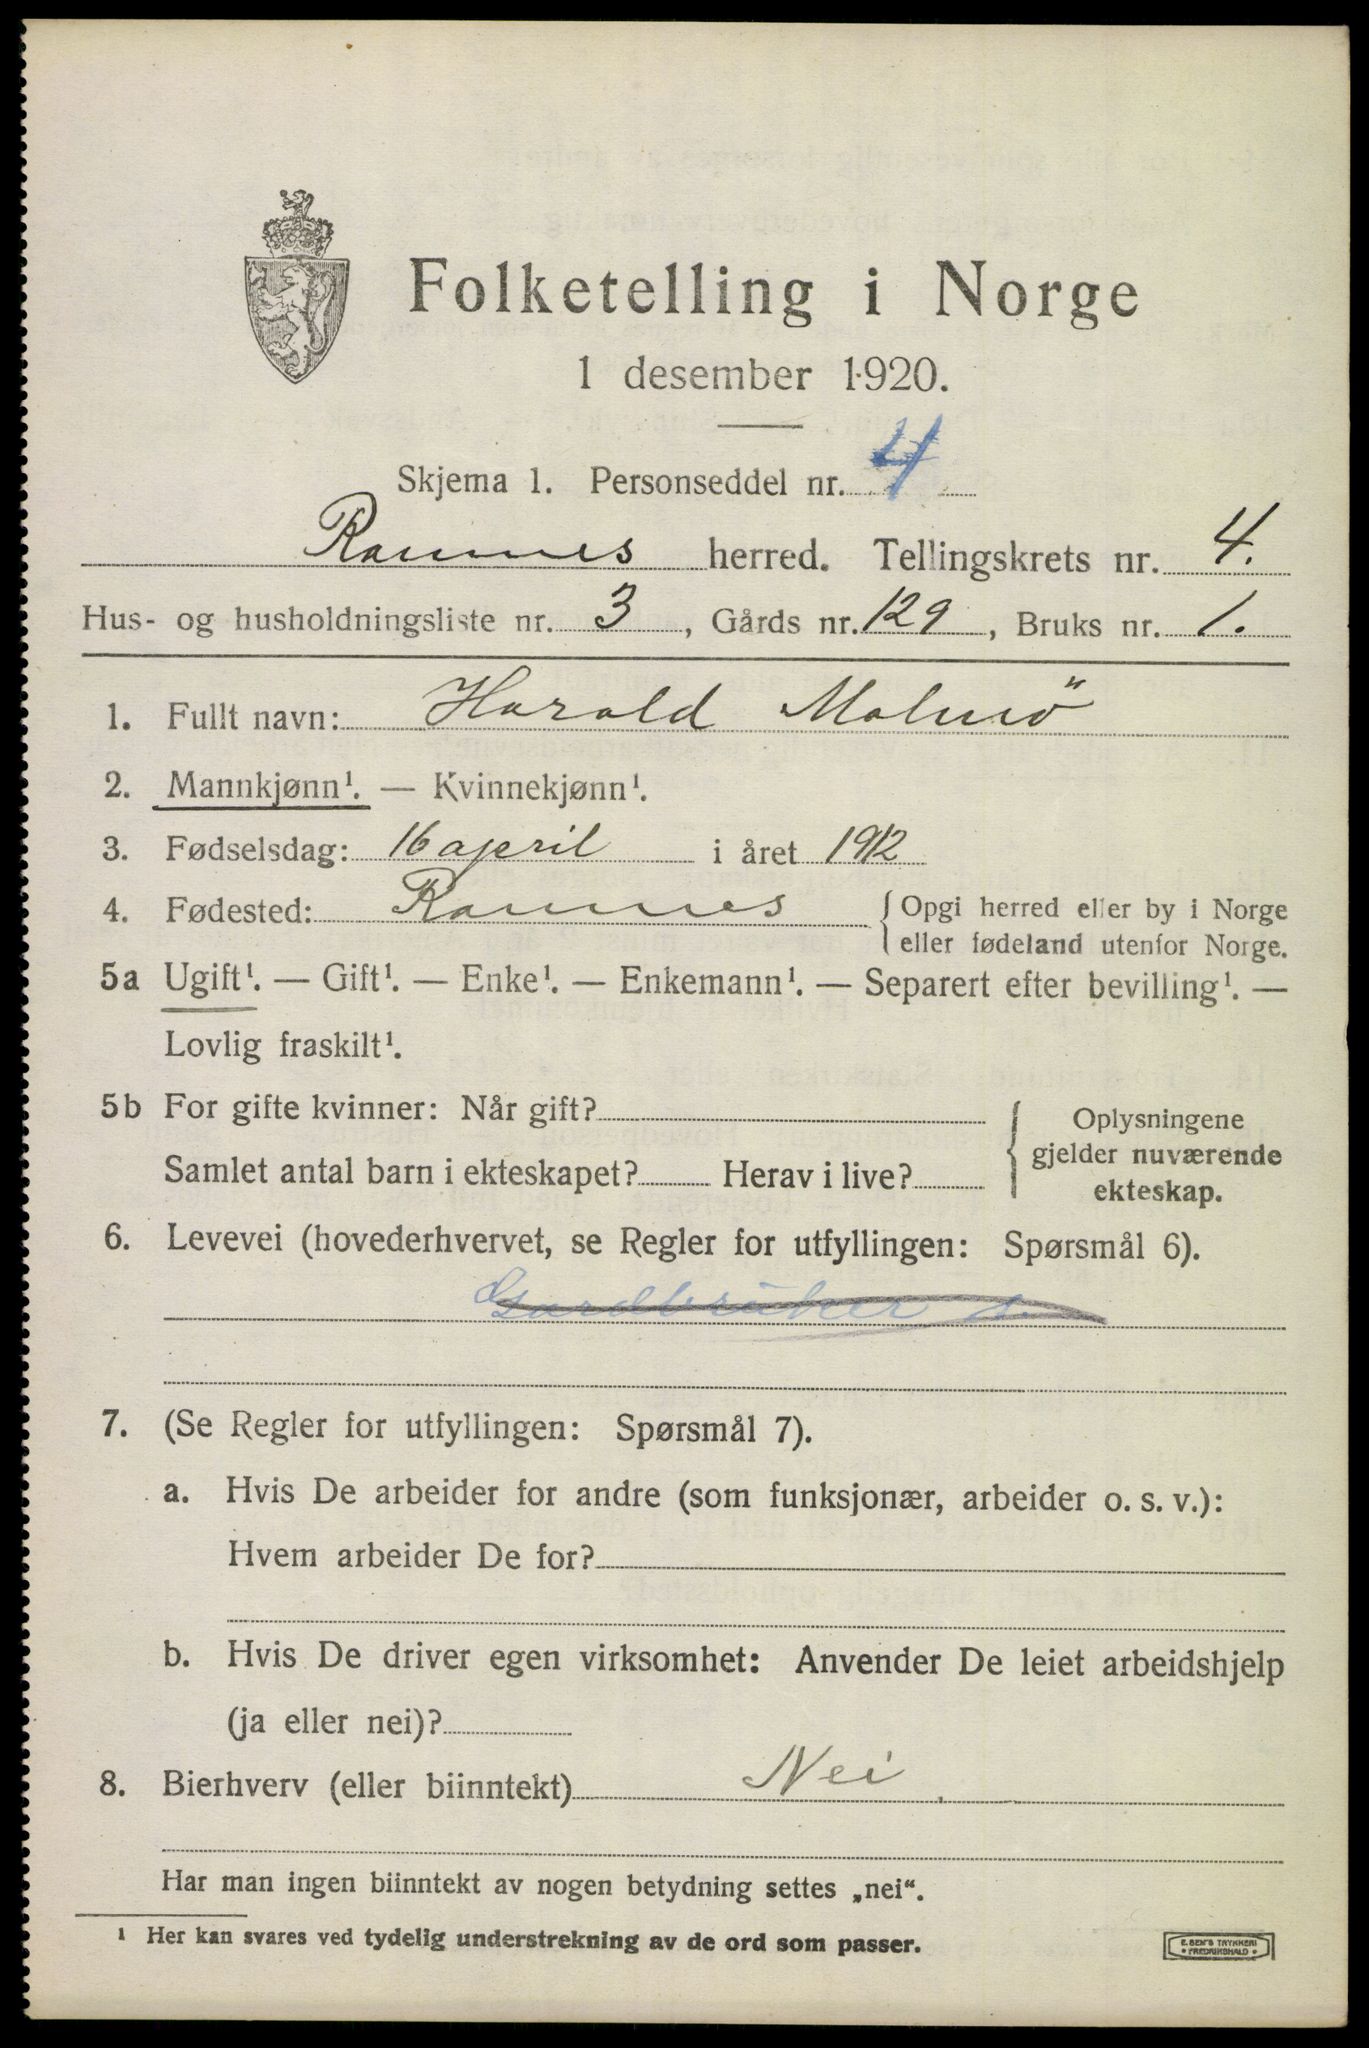 Folketelling i Norge
1 desember 1920.
Skjema 1. Personseddel nr. 4
Raumnes herred. Tellingskrets nr. 4.
Hus- og husholdningsliste nr. 3, Gårds nr. 129, Bruks nr. 1.
1. Fullt navn: Harald Malmö
2. Mannkjønn¹. — Kvinnekjønn¹.
3. Fødselsdag: 16 april i året 1912
4. Fødested: Raumnes {Opgi herred eller by i Norge
eller fødeland utenfor Norge.
5a Ugift¹. — Gift¹. — Enke¹. — Enkemann¹. — Separert efter bevilling¹. —
Lovlig fraskilt¹.
5b For gifte kvinner: Når gift?
Samlet antal barn i ekteskapet? Herav i live?
Oplysningene
gjelder nuværende
ekteskap.
6. Levevei (hovederhvervet, se Regler for utfyllingen: Spørsmål 6).
Gardbruker s.
7. (Se Regler for utfyllingen: Spørsmål 7).
a. Hvis De arbeider for andre (som funksjonær, arbeider o. s. v.):
Hvem arbeider De for?
b. Hvis De driver egen virksomhet: Anvender De leiet arbeidshjelp
(ja eller nei)?
8. Bierhverv (eller biinntekt) Nei.
Har man ingen biinntekt av nogen betydning settes „nei“.
¹ Her kan svares ved tydelig understrekning av de ord som passer.
E. SEM'S TRYKKERI
• FREDRIKSHALD •